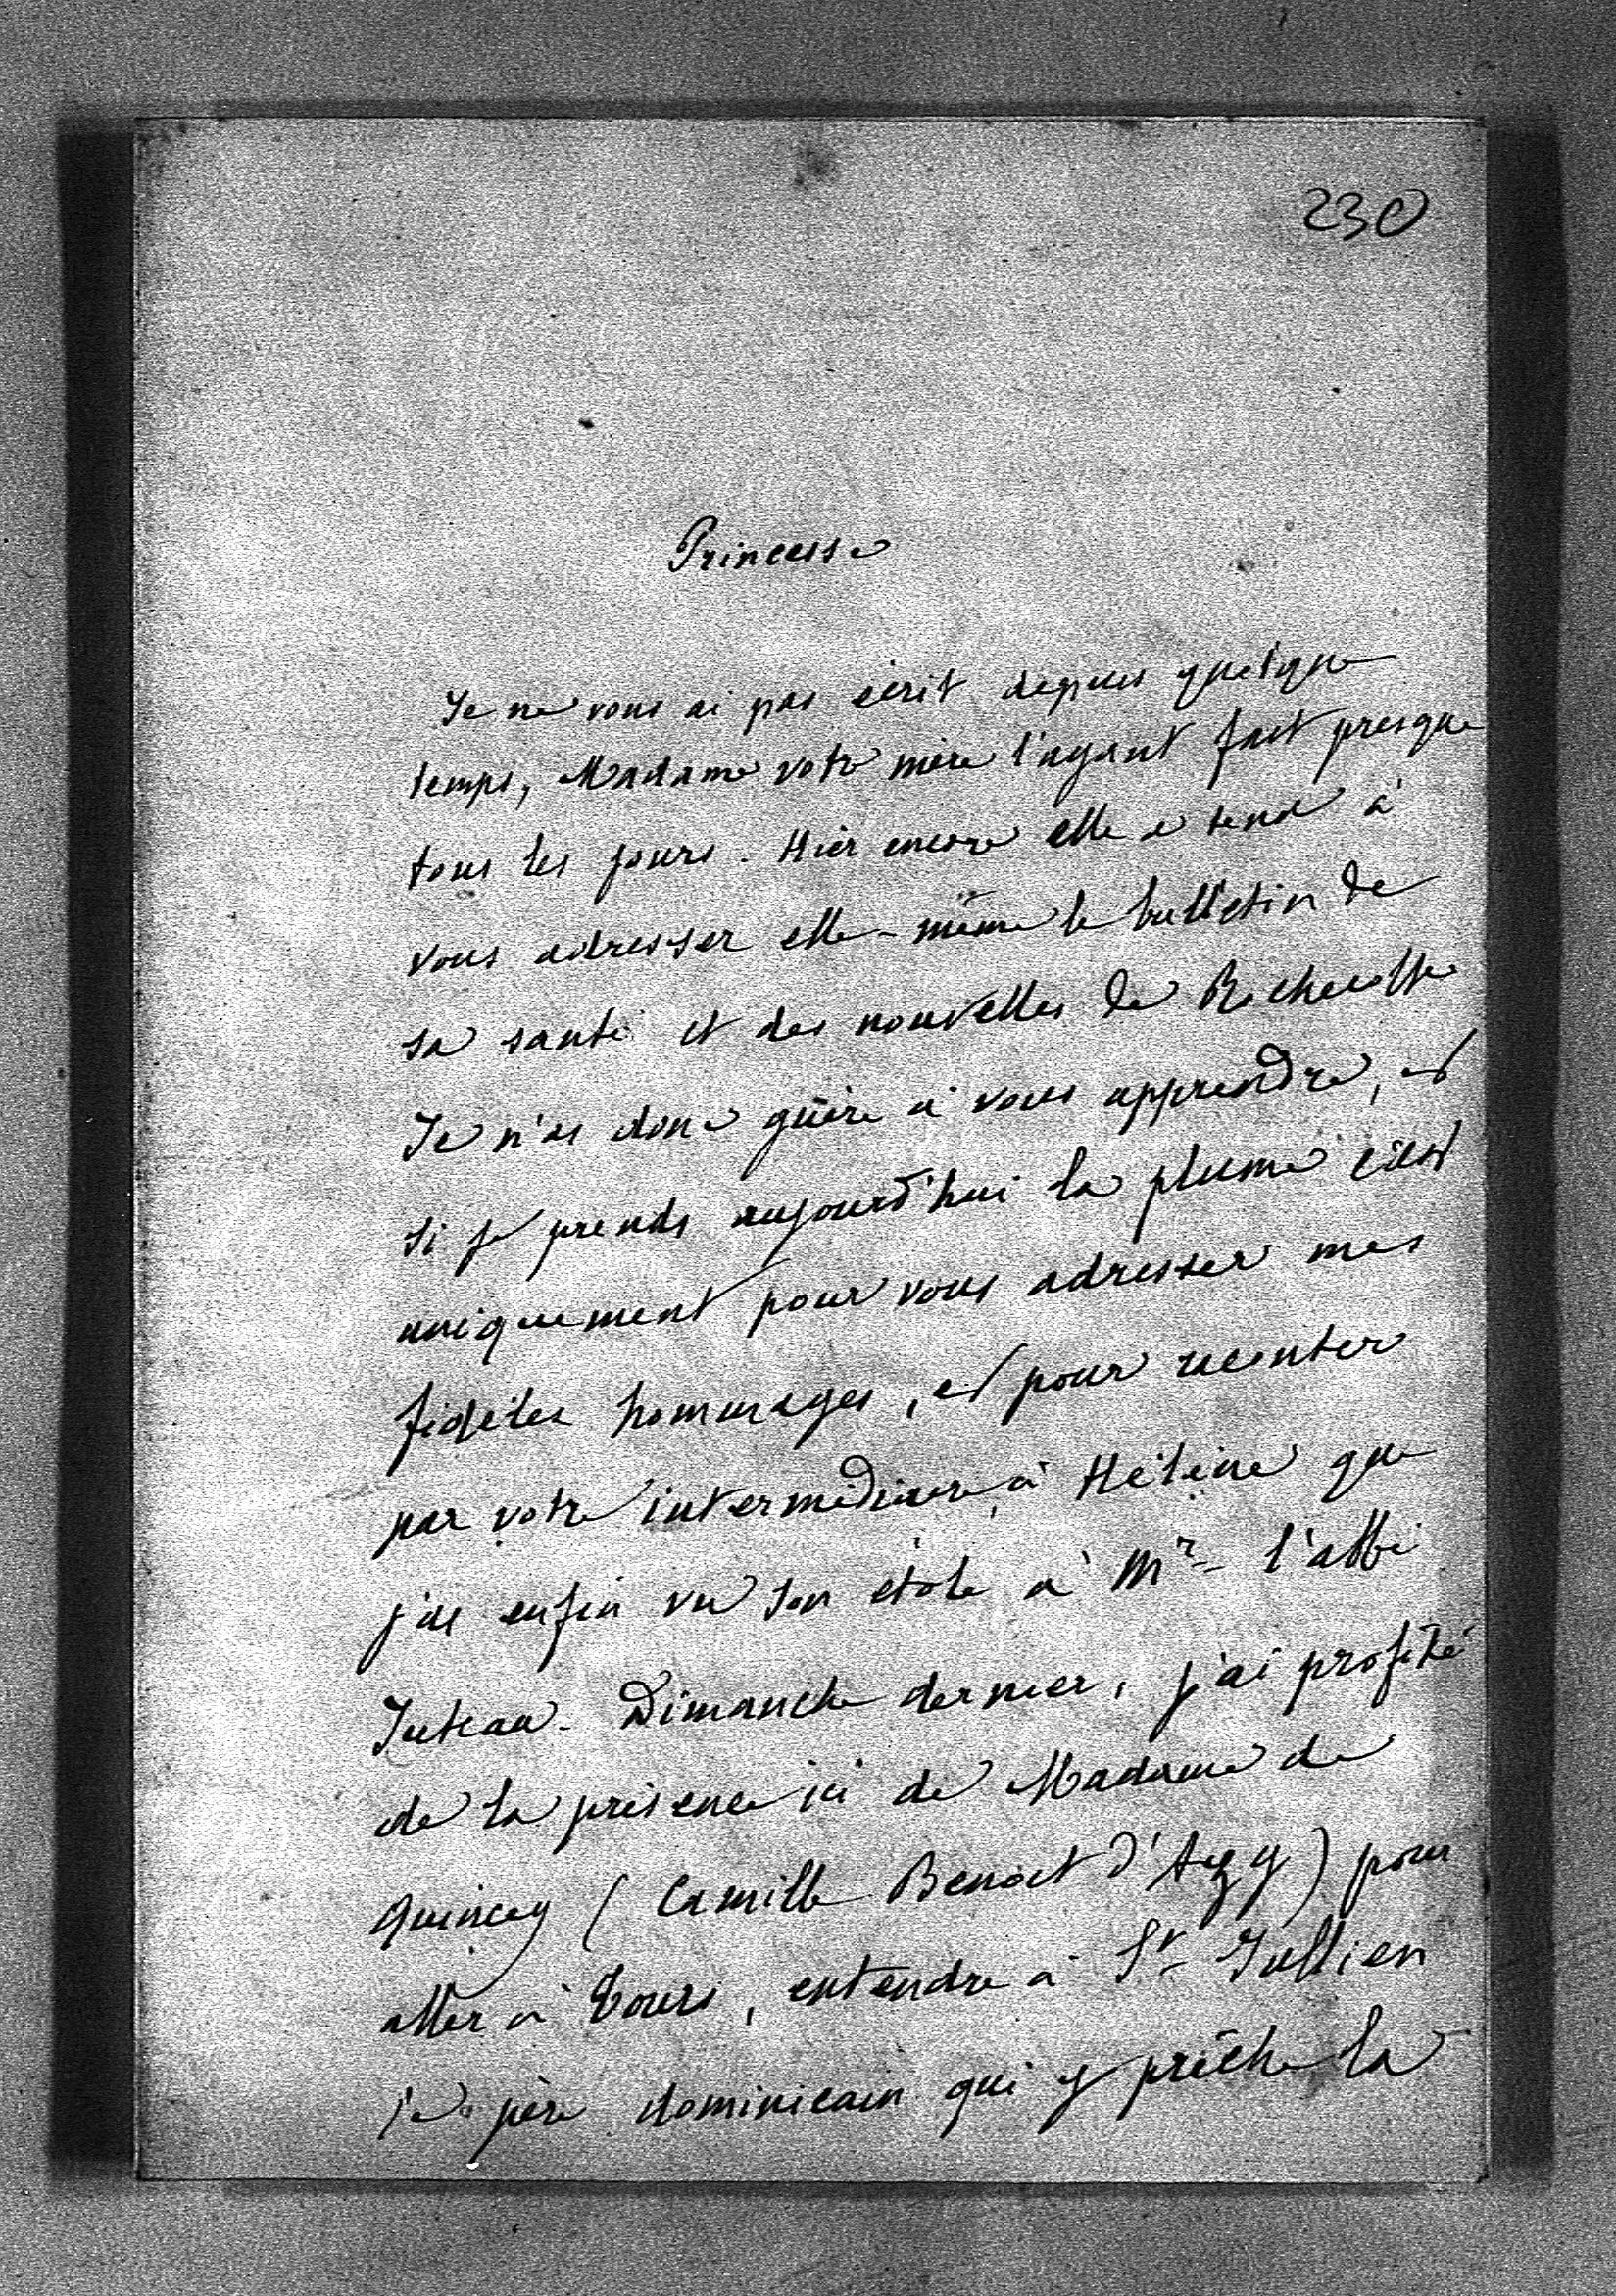 230
Princesse
Je ne vous ai pas écrit depuis quelque
temps, Madame votre mère l'ayant fait presque
tous les jours. Hier encore elle a tenu à
vous adresser elle-même le bulletin de
sa santé et des nouvelles de Rochecotte
Je n'ai donc guère à vous apprendre, et
si je prends aujourd'hui la plume c'est
uniquement pour vous adresser mes
fidèles hommages, et pour raconter
par votre intermédiaire à Hélène que
j'ai enfin vu son étole à Mr l'abbé
Juteau. Dimanche dernier, j'ai profité
de la présence ici de Madame de
Quincey (Camille Benoit d'Azy) pour
aller à Tours, entendre à St Jullien
le père dominicain qui y prêche la